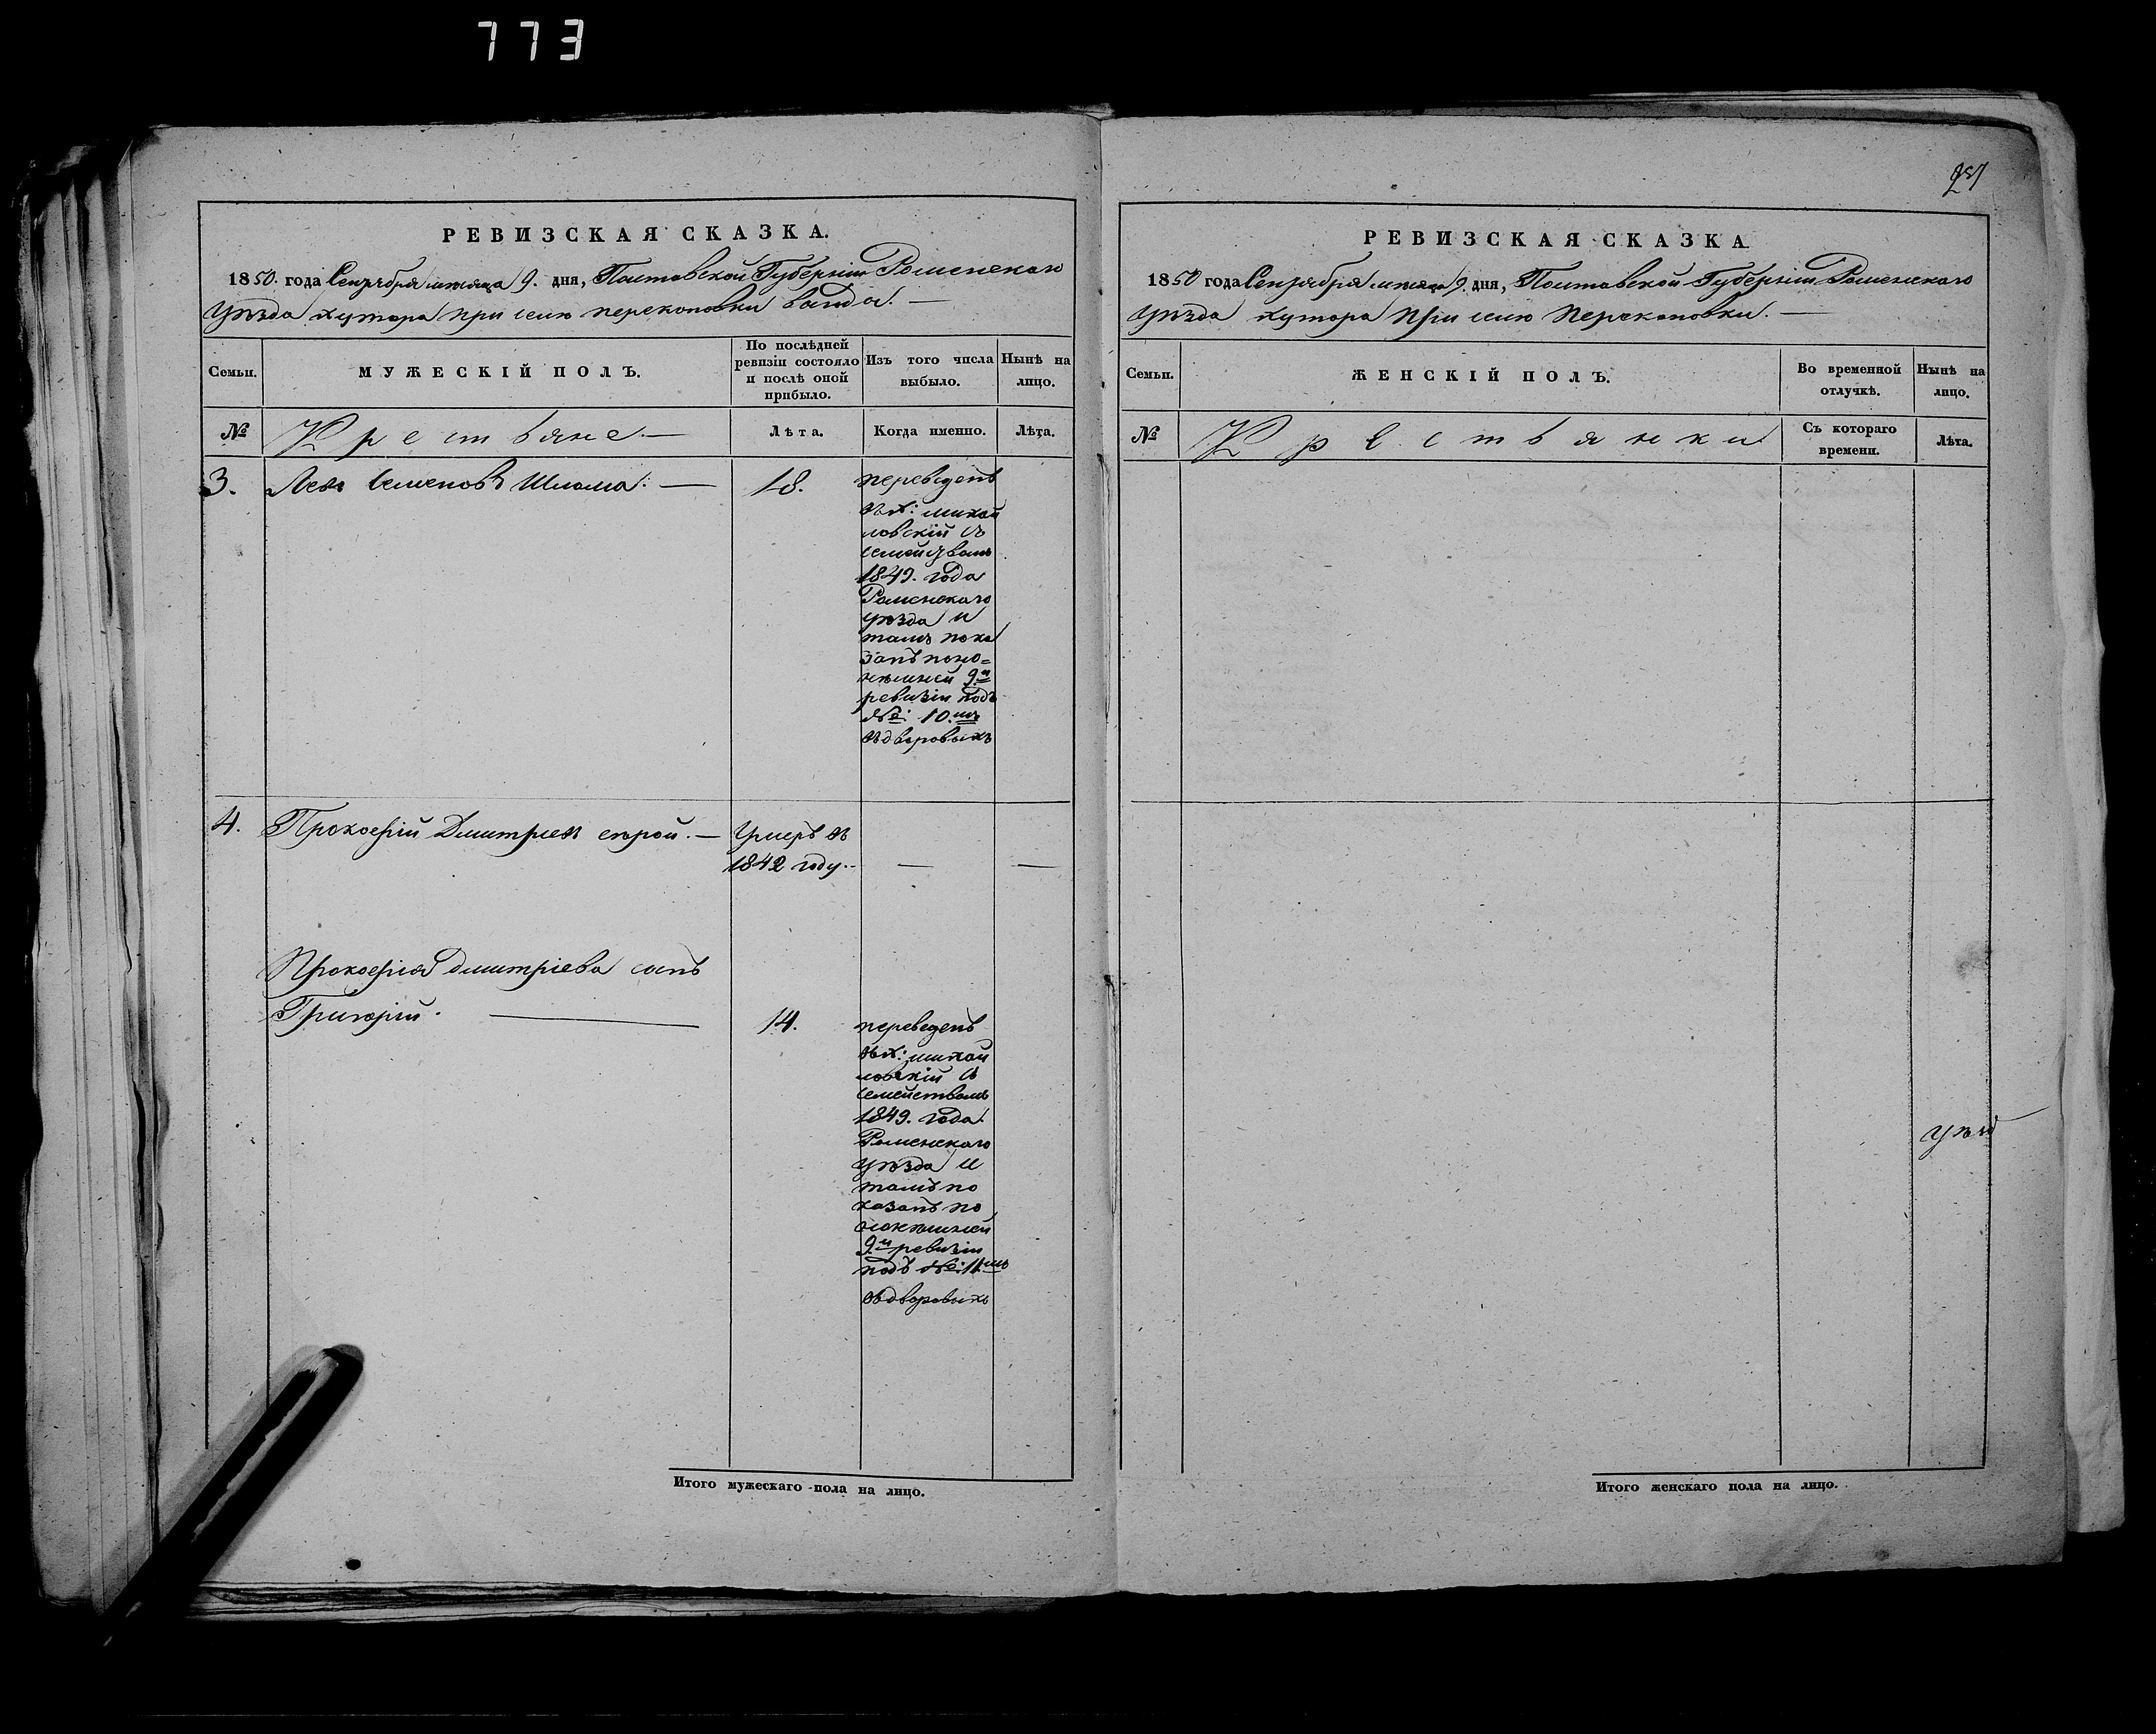 773
РЕВИЗСКАЯ СКАЗКА.
1850. года Сентября месяца 9. дня, Полтавской Губерніи Роменскаго
Уѣзда хутора при селѣ перекоповки
Семьи.
МУЖЕСКІЙ ПОЛЪ.
По послѣдней ревизіи состояло и послѣ оной прибыло.
Изъ того числа выбыло.
Нынѣ на лицо.
№
Крестьяне.—
Лѣта.
Когда именно.
Лѣта.
3.
Левъ Семеновъ —
18.
переведенъ
въ х: михай
ловскій съ
семействомъ
1849. года
Роменскаго
уѣзда и
тамъ пока
занъ по но=
нѣшней 9й
ревизіи подъ
№: 10.мъ
въ дворовыхъ
4.
Прокофій Дмитріев сѣрой. —
Умеръ въ
1842 году. — —
Прокофія Дмитріева сынъ
Григорій. —
14.
переведенъ
въ х: михай
ловскій съ
семействомъ
1849. года
Роменскаго
уѣзда и
тамъ по
казанъ по
нонѣшней
9.й ревизіи
подъ №: 11.мъ
въ дворовыхъ
Итого мужескаго пола на лицо.
РЕВИЗСКАЯ СКАЗКА
1850 года Сентября месяца 9. дня, Полтавской Губерніи Роменскаго
уѣзда хутора при селѣ Перекоповки. —
Семьи.
ЖЕНСКІЙ ПОЛЪ.
Во временной отлучкѣ.
Нынѣ на лицо.
№
Крестьянки
Съ котораго времени.
Лѣта.
Итого женскаго пола на лицо.